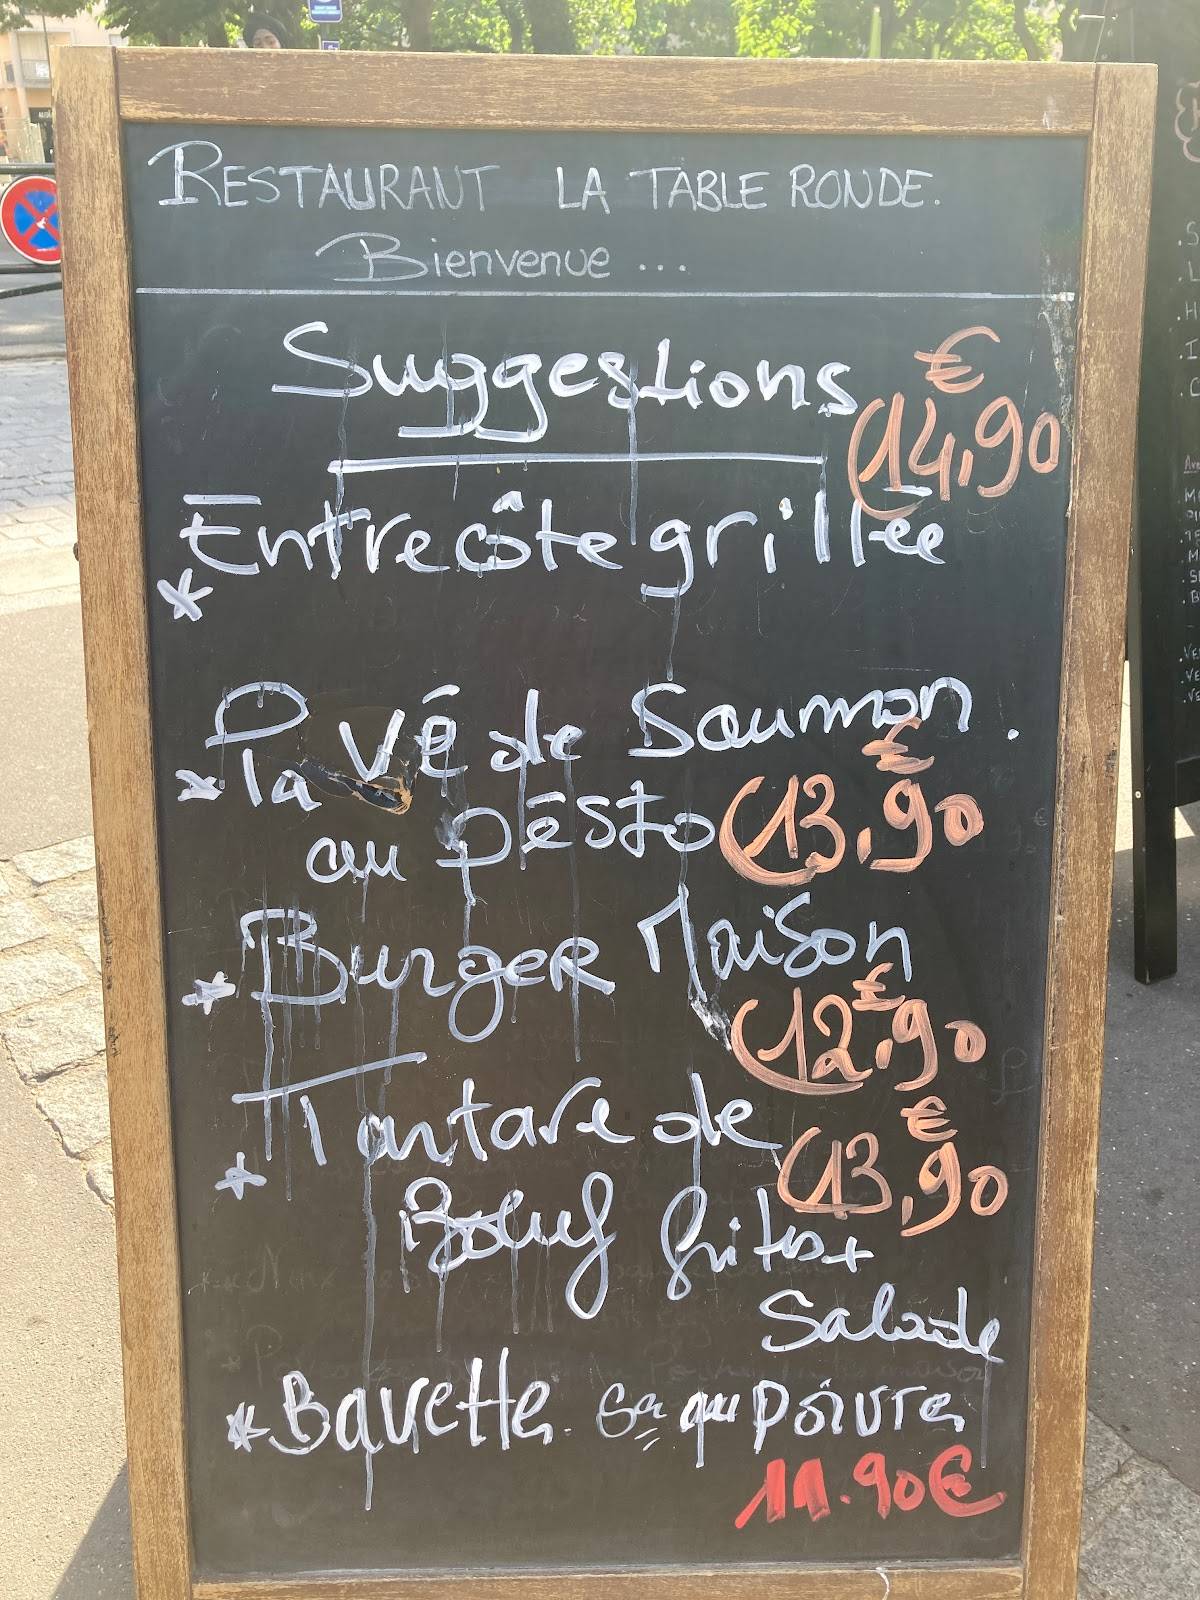 RESTAURANT LA TABLE RONDE.
Bienvenue ...
Suggestions
€
14,90
* Entrecôte grillée
* Pla vé de Saumon.
au pésto
€
13,90
* Burger Maison
€
12,90
* Tartare de
Boeuf frites +
Salade
€
13,90
* Bavette. au poivre
11.90€